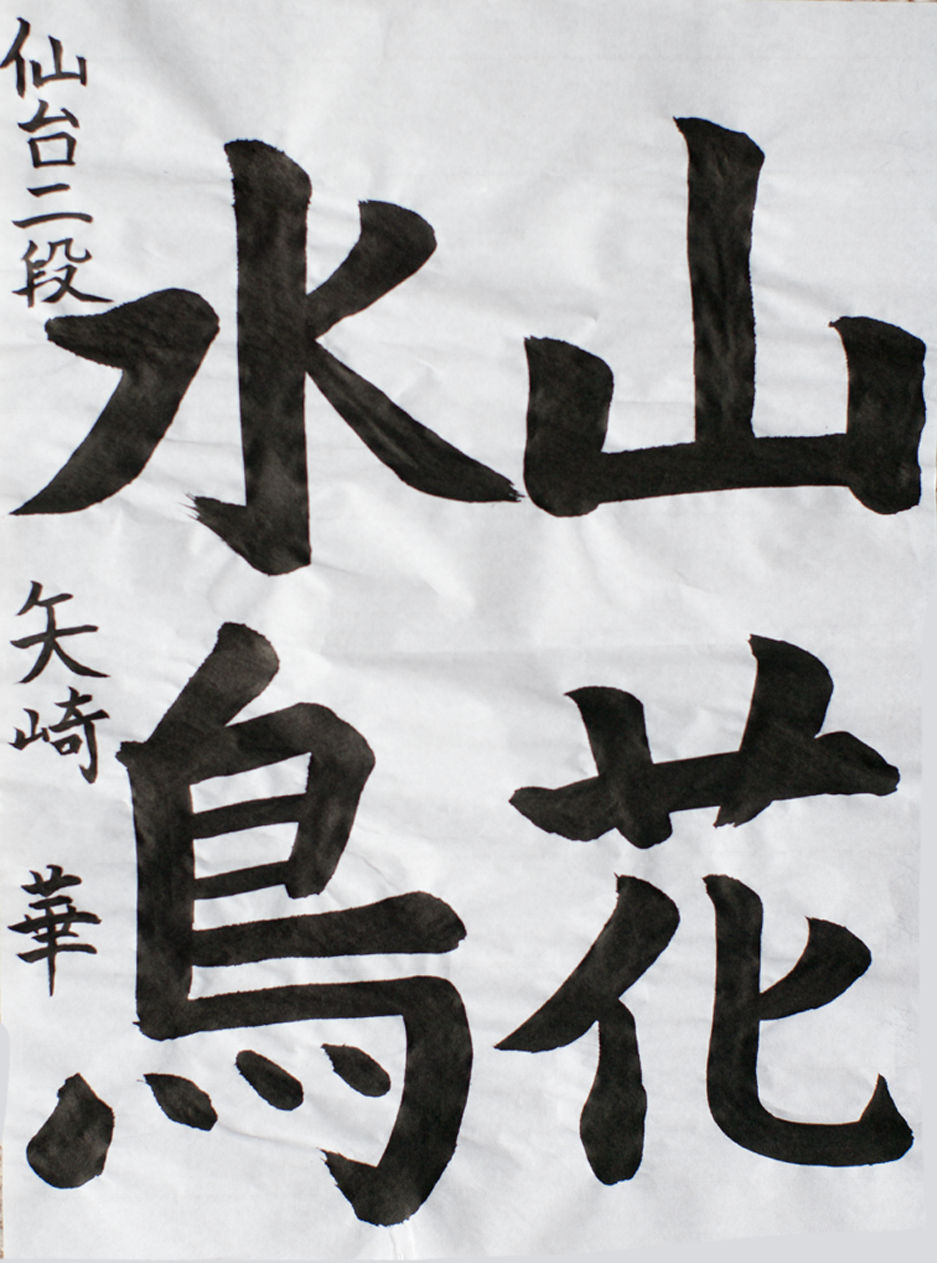 山花
水鳥
仙台二段 矢崎 華